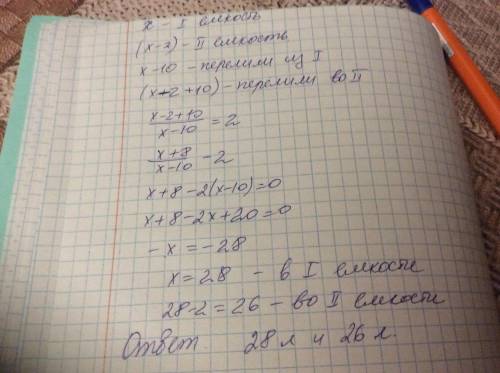 x - I емкость
(x-2) - II емкость
x-10 - перелили из I
(x-2+10) - перелили во II
x-2+10/x-10 = 2
x+8/x-10 - 2
x+8-2(x-10)=0
x+8-2x+20=0
-x=-28
x=28 - в I емкости
28-2=26 - во II емкости
Ответ 28 л и 26 л.